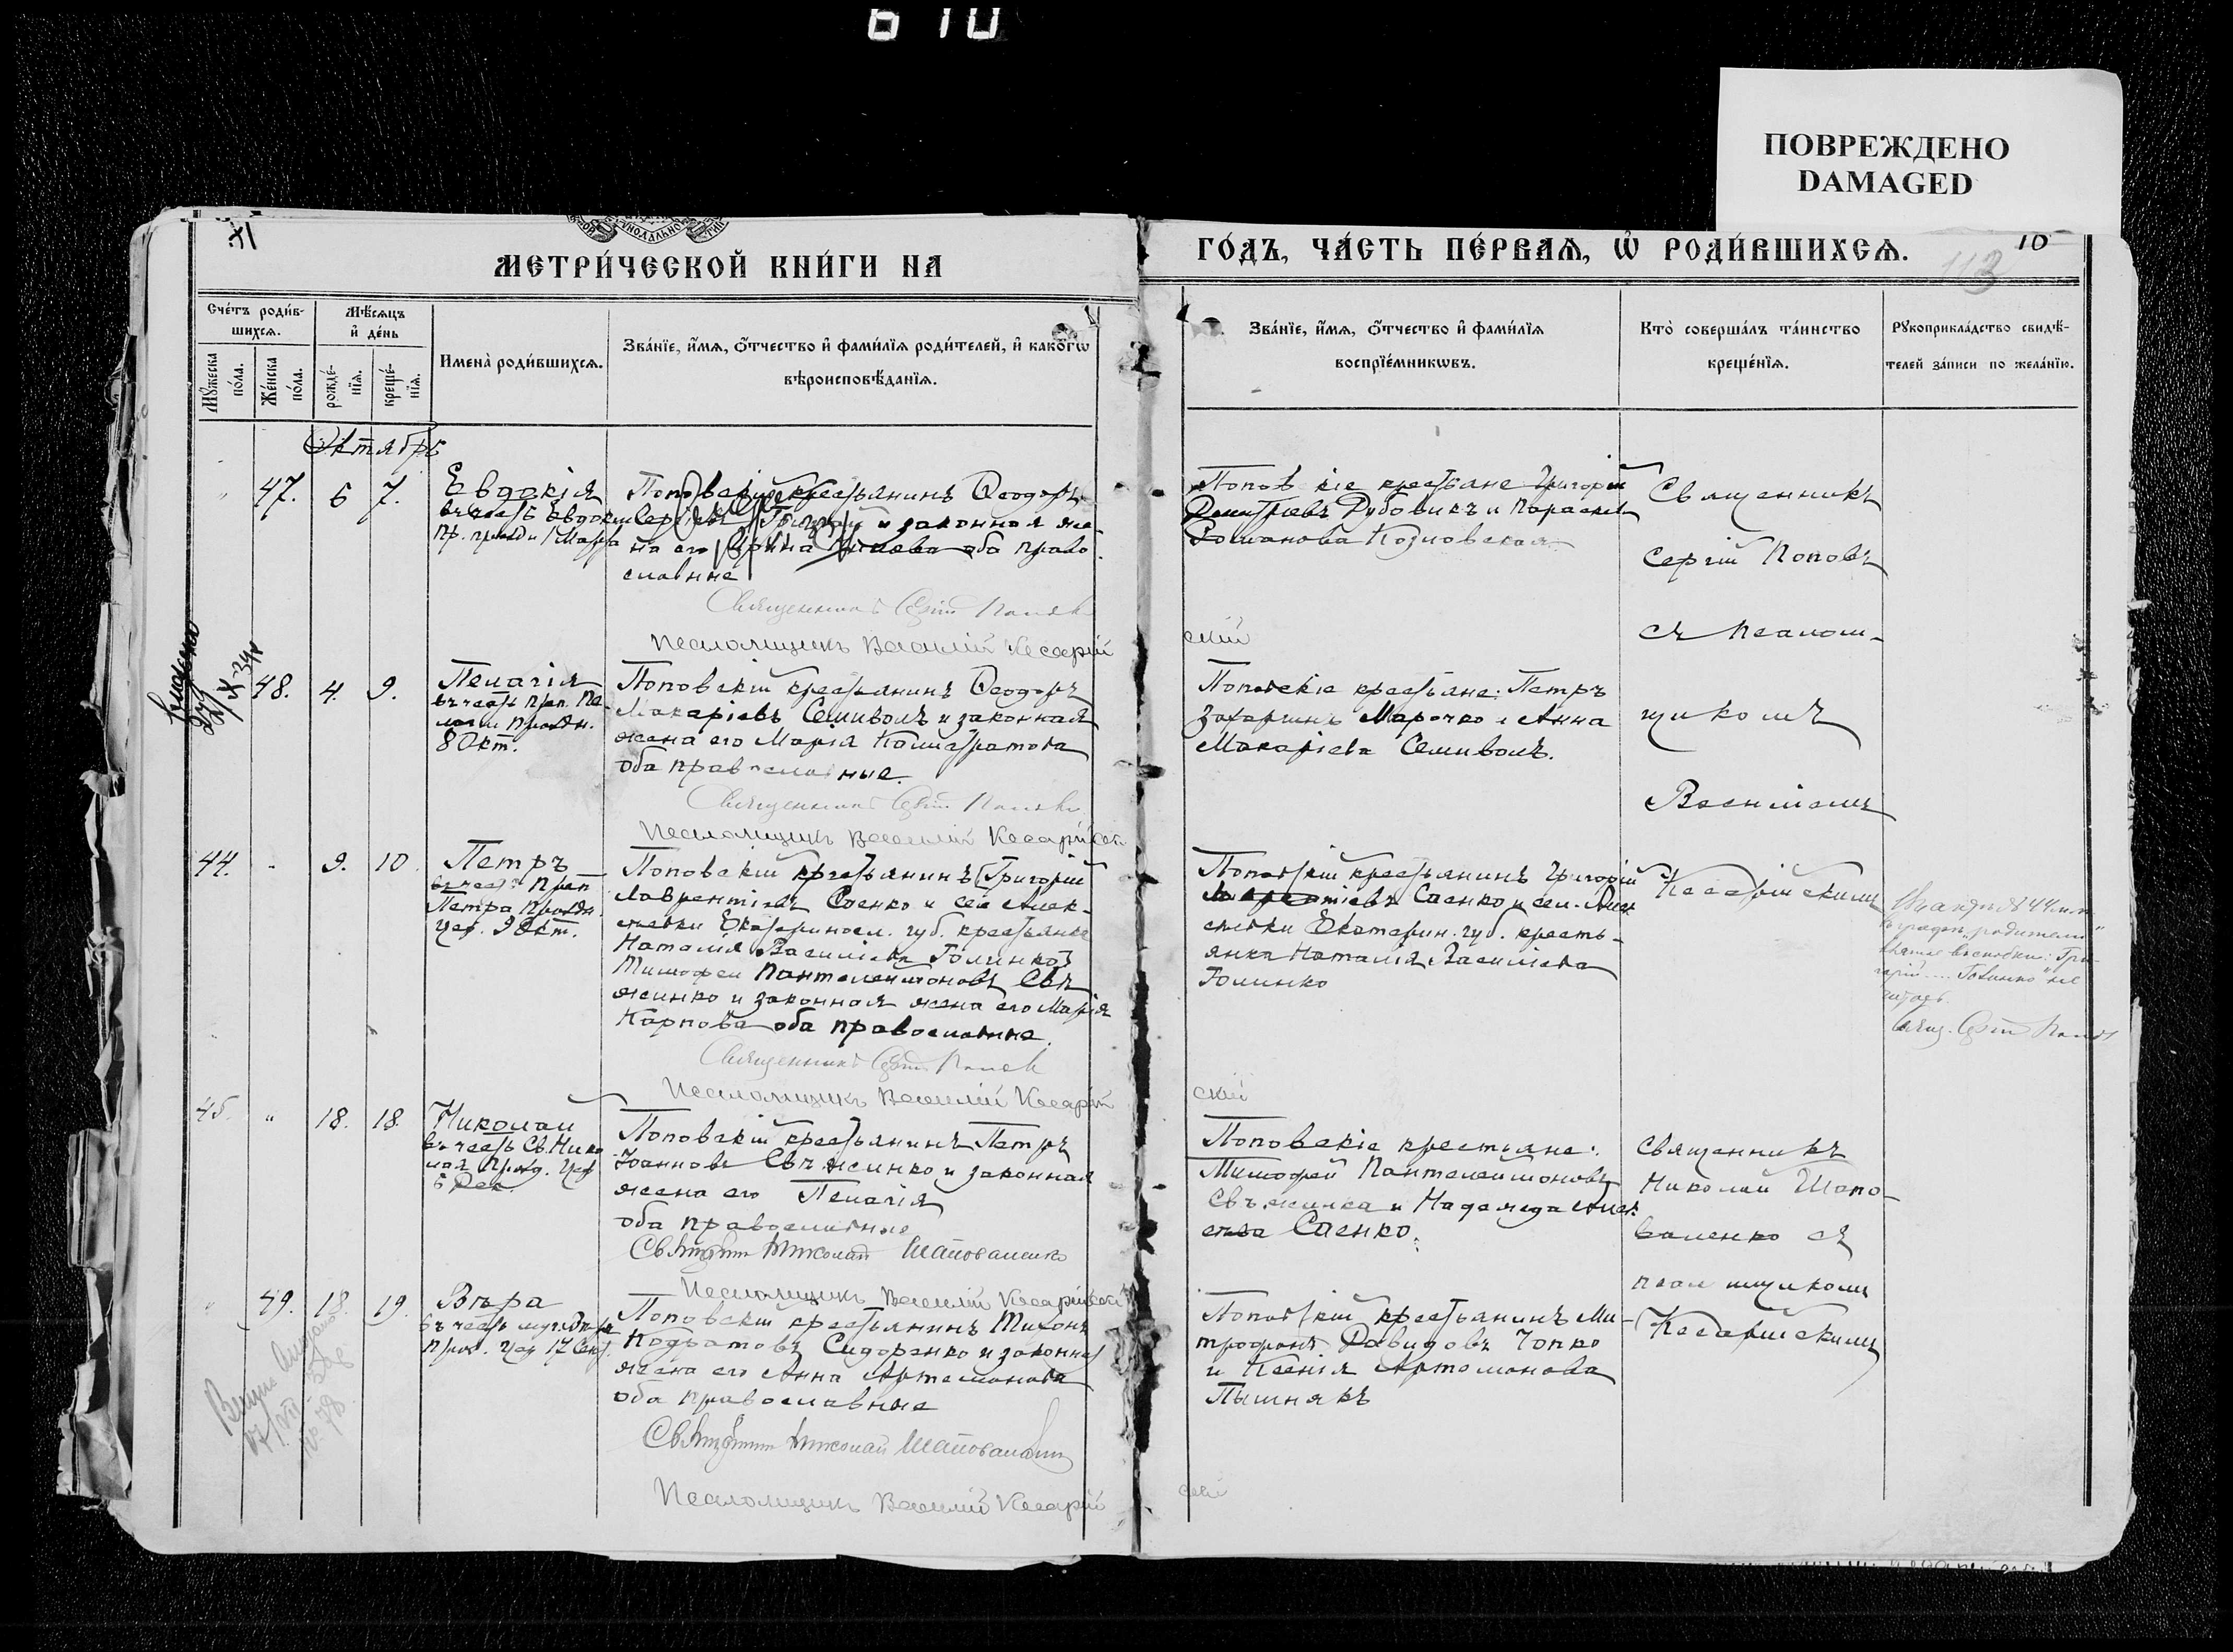 610
ПОВРЕЖДЕНО
DAMAGED
XI
МЕТРИ́ЧЕСКОЙ КНИ́ГИ НА
ГО́ДЪ, ЧА́СТЬ ПЕ́РВАѦ, Ѡ҆ РОДИ́ВШИХСѦ.
10
113
Сче́тъ роди́в-
шихсѧ.
Мѣ́сѧцъ
и҆ де́нь
Мꙋ́жеска
по́ла.
Же́нска
по́ла.
рожде́-
нїѧ.
креще́-
нїѧ.
Имена̀ роди́вшихсѧ.
Зва́нїе, и҆́мѧ, ѻ҆́тчество и҆ фами́лїѧ роди́телей, и҆ како́гѡ
вѣроисповѣ́данїѧ.
Зва́нїе, и҆́мѧ, ѻ҆́тчество и҆ фами́лїѧ
воспрїе́мникѡвъ.
Кто̀ соверша́лъ та́инство
креще́нїѧ.
Рꙋкоприкла́дство свидѣ́-
телей за́писи по жела́нїю.
Октябрь
47. 6 7.
Евдокія
въ честь Евдокіи
Поповскій крестьянинъ Ѳеодоръ
и законная же-
на его Ирина оба право-
славные
Священникъ Сергій Поповъ
Псаломщикъ Василій Кесарій
скій
Поповскіе крестьяне Григорій
Димитріевъ Дубовикъ и Параскева
Романова Козловская
Священникъ
Сергій Поповъ
съ псалом-
щикомъ
Василіемъ
Кесарійскимъ
48. 4. 9.
Пелагія
въ честь преп. Пе-
лагіи праздн.
8 Окт.
Поповскій крестьянинъ Ѳеодоръ
Макаріевъ Семиволъ и законная
жена его Марія
оба православные.
Священникъ Сергій Поповъ
Псаломщикъ Василій Кесарійскій
Поповскіе крестьяне: Петръ
Захаріинъ Марочко и Анна
Макаріева Семиволъ.
44. - 9. 10
Петръ
въ честь Преп
Петра праздн.
цер. 9 Окт.
Поповскій крестьянинъ [Григорій
Лаврентіевъ Саенко и сел Алек-
сѣевки Екатериносл. губ. крестьянка
Наталія Василіева Голинко]
Тимофей Пантелеимоновъ Свѣ-
жинко и законная жена его Марія
Карпова оба православные.
Священникъ Сергій Поповъ
Псаломщикъ Василій Кесарій
скій
Поповскій крестьянинъ Григорій
Лаврентіевъ Саенко и сел. Алек
сѣевки Екатерин. губ. кресть-
янка Наталія Василіева
Голинко
въ графѣ „родители"
взятое въ скобки: Гри-
горій .... Голинко не
читать.
Свящ. Сергій Поповъ
45. " 18. 18.
Николай
въ честь Св. Нико
лая празд. цер
6 Дек.
Поповскій крестьянинъ Петръ
Іоанновъ Свѣжинко и законная
жена его Пелагія
оба православные
Священникъ Николай Шаповаленко
Псаломщикъ Василій Кесарійскій
Поповскіе крестьяне:
Тимофей Пантелеимоновъ
Свѣжинка и Надежда Алек
сѣева Саенко.
Священникъ
Николай Шапо-
валенко съ
псаломщикомъ
Кесарійскимъ
49. 18. 19.
Вѣра
Поповскій крестьянинъ Тихонъ
Кодратовъ Сидоренко и законная
жена его Анна Артемонова
оба православные
Священникъ Николай Шаповаленко
Псаломщикъ Василій Кесарій
скій
Поповскій крестьянинъ Ми-
трофанъ Давидовъ Чопко
и Ксенія Артомонова
Пышнякъ
№ 78